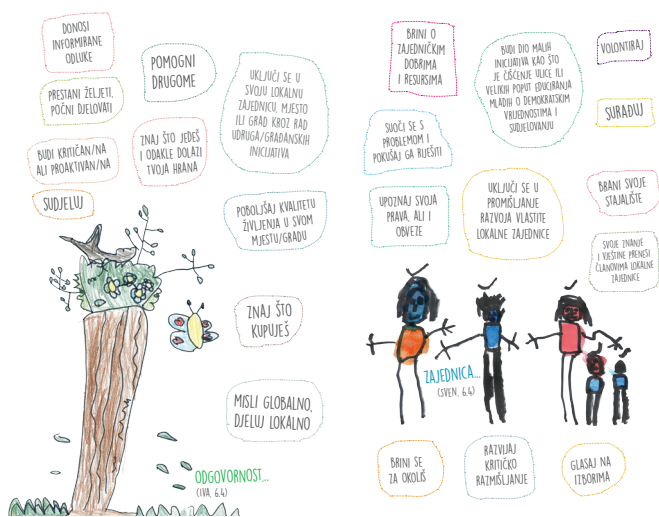 DONOSI
INFORMIRANE
ODLUKE
PRESTANI ŽELJETI,
POČNI DJELOVATI
BUDI KRITIČAN/NA
ALI PROAKTIVAN/NA
SUDJELUJ
POMOGNI
DRUGOME
ZNAJ ŠTO JEDEŠ
I ODAKLE DOLAZI
TVOJA HRANA
UKLJUČI SE U
SVOJU LOKALNU
ZAJEDNICU, MJESTO
ILI GRAD KROZ RAD
UDRUGA/GRAĐANSKIH
INICIJATIVA
POBOLJŠAJ KVALITETU
ŽIVLJENJA U SVOM
MJESTU/GRADU
ZNAJ ŠTO
KUPUJEŠ
MISLI GLOBALNO,
DJELUJ LOKALNO
ODGOVORNOST...
(IVA, 6.4)
BRINI O
ZAJEDNIČKIM
DOBRIMA
I RESURSIMA
SUOČI SE S
PROBLEMOM I
POKUŠAJ GA RIJEŠITI
UPOZNAJ SVOJA
PRAVA, ALI I
OBVEZE
BUDI DIO MALIH
INICIJATIVA KAO ŠTO
JE ČIŠĆENJE ULICE ILI
VELIKIH POPUT EDUCIRANJA
MLADIH O DEMOKRATSKIM
VRIJEDNOSTIMA I
SUDJELOVANJU
UKLJUČI SE U
PROMIŠLJANJE
RAZVOJA VLASTITE
LOKALNE ZAJEDNICE
VOLONTIRAJ
SURAĐUJ
BRANI SVOJE
STAJALIŠTE
SVOJE ZNANJE
I VJEŠTINE PRENESI
ČLANOVIMA LOKALNE
ZAJEDNICE
ZAJEDNICA...
(SVEN, 6.4)
BRINI SE
ZA OKOLIŠ
RAZVIJAJ
KRITIČKO
RAZMIŠLJANJE
GLASAJ NA
IZBORIMA